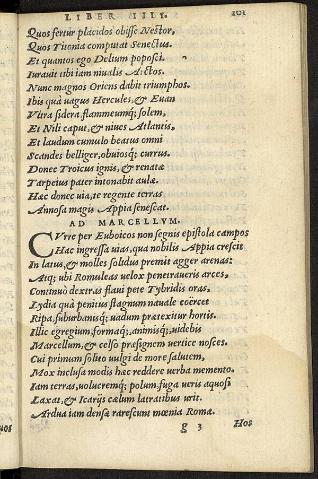 LIBER IIII.
101
Quos fertur placidos obisse Nestor,
Quos Titonia computat Senectus.
Et quantos ego Delium poposci.
Iurauit tibi iam niualis Arctos.
Nunc magnos Oriens dabit triumphos.
Ibis quà uagus Hercules, & Euan
Vltra sidera, flammeumq; solem,
Et Nili caput, & niues Atlantis,
Et laudum cumulo beatus omni
Scandes belliger, obuiosq; currus.
Donec Troicus ignis, & renatæ
Tarpeius pater intonabit aulæ.
Hac donec uia, te regente terras
Annosa magis Appia senescat.
AD MARCELLVM.
CVrre per Euboicos non segnis epistola campos
Hac ingressa uias, qua nobilis Appia crescit
In latus, & molles solidus premit agger arenas:
Atq; ubi Romuleas uelox penetraueris arces,
Continuò dextras flaui pete Tybridis oras,
Lydia quà penitus stagnum nauale coërcet
Ripa, suburbanisq; uadum prætexitur hortis.
Illic egregium, formaq; animisq; uidebis
Marcellum, & celso præsignem uertice nosces.
Cui primum solito uulgi de more salutem,
Mox inclusa modis hæc reddere uerba memento.
Iam terras, uolucremq; polum, fuga ueris aquosi
Laxat, & Icarijs cælum latratibus urit.
Ardua iam densæ rarescunt mœnia Romæ.
g 3
Hos